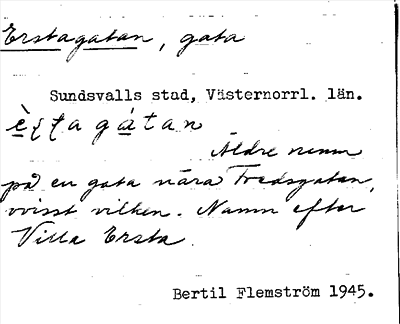 Erstagatan, gata
Sundsvalls stad, Västernorrl. län.
Äldre namn
på en gata nära Fredsgatan,
ovisst vilken. Namn efter
Villa Ersta.
Bertil Flemström 1945.